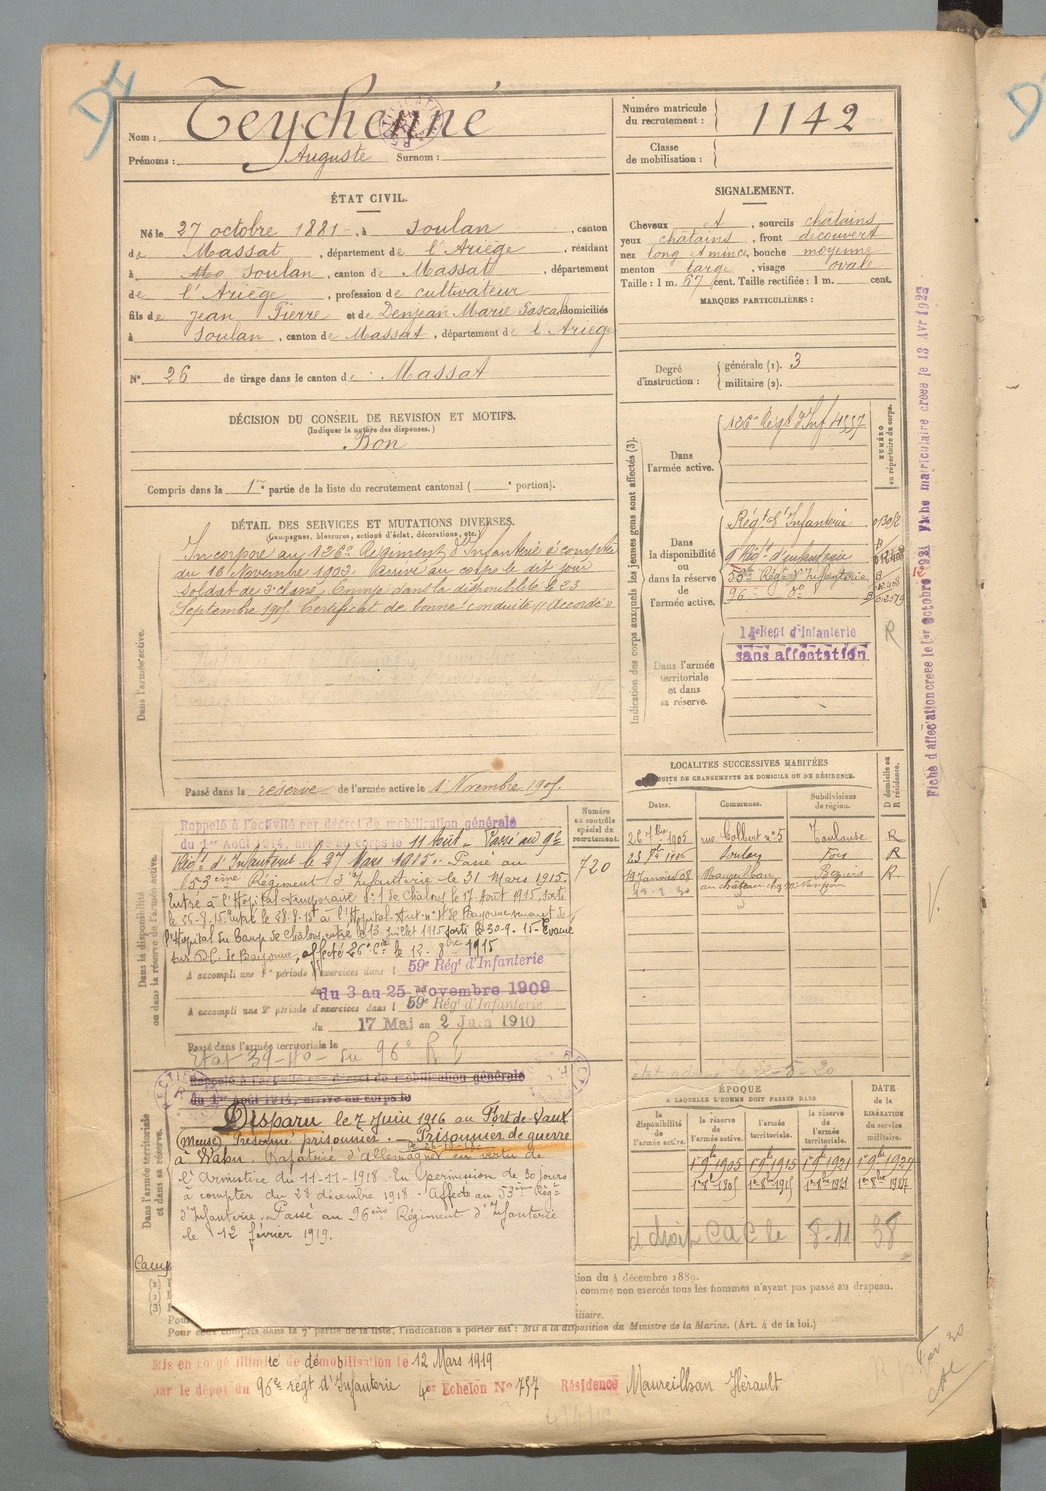 Nom : Teychenné
Prénoms : Auguste Surnom :
Numéro matricule
du recrutement : 1142
Classe
de mobilisation :
ÉTAT CIVIL.
Né le 27 octobre 1881, à Soulan, canton
de Massat, département de l'Ariège, résidant
à Soulan, canton de Massat, département
de l'Ariège, profession de cultivateur
fils de Jean Pierre et de Denjean Marie Pascale domiciliés
à Soulan, canton de Massat, département de l'Ariège
N° 26 de tirage dans le canton de Massat
DÉCISION DU CONSEIL DE REVISION ET MOTIFS.
(Indiquer la nature des dispenses.)
Bon
Compris dans la 1re partie de la liste du recrutement cantonal ( e portion).
SIGNALEMENT.
Cheveux , sourcils châtains
yeux châtains, front découvert
nez long & mince, bouche moyenne
menton large, visage ovale
Taille : 1 m. 67 cent. Taille rectifiée : 1 m. cent.
MARQUES PARTICULIÈRES :
Degré
d'instruction :
générale (1). 3
militaire (2).
DÉTAIL DES SERVICES ET MUTATIONS DIVERSES.
(Campagnes, blessures, actions d'éclat, décorations, etc.)
Dans l'armée active.
Incorporé au 126e Régiment d'Infanterie à compter
du 16 Novembre 1903. Arrivé au corps le dit jour
soldat de 2e classe. Envoyé dans la disponibilité le 23
Septembre 1905. Certificat de bonne conduite "Accordé"
Passé dans la réserve de l'armée active le 1 Novembre 1905.
Indication des corps auxquels les jeunes gens sont affectés (3).
NUMÉRO
au répertoire du corps.
Dans
l'armée active.
126e Régt d'Inf 4557
Dans
la disponibilité
ou
dans la réserve
de
l'armée active.
Régt d'Infanterie
9e Régt d'infanterie
53e Régt d'Infanterie
96 do
Dans l'armée
territoriale
et dans
sa réserve.
14e Regt d'Infanterie
sans affectation
R
Fiche d'affectation créée le 1er octobre 1921 Fiche matriculaire créée le 13 Avr 1923
LOCALITÉS SUCCESSIVES HABITÉES
PAR SUITE DE CHANGEMENTS DE DOMICILE OU DE RÉSIDENCE.
Dates. Communes. Subdivisions
de région. D domicile ou
R résidence.
26 7bre 1905 rue Colbert n° 5 Toulouse R
Soulan Foix R
19 Janvier 08 Maureilhan Béziers R.
au château chez
Dans la disponibilité
ou dans la réserve de l'armée active.
Numéro
au contrôle
spécial du
recrutement.
720
Rappelé à l'activité par décret de mobilisation générale
du 1er Août 1914, arrivé au corps le 11 Août. Passé au 9e
Régt d'Infanterie le 27 Mars 1915. Passé au
53ème Régiment d'Infanterie le 31 Mars 1915.
Entré à l'Hôpital Temporaire n° 1 de Chalons le 17 Août 1915, sorti
l'Hôpital du Camp de Châlons, entré le 13 juillet 1915 sorti le 30-9-15 Evacué
sur de Bayonne, affecté 26e Cie le 12-8bre 1915
A accompli une 1re période d'exercices dans l 59e Régt d'Infanterie
du 3 au 25 Novembre 1909
A accompli une 2e période d'exercices dans l 59e Régt d'Infanterie
du 17 Mai au 2 Juin 1910
Passé dans l'armée territoriale le
état 39-40 du 96e R I
Dans l'armée territoriale
et dans sa réserve.
Rappelé à l'activité par décret de mobilisation générale
du 1er Août 1914, arrivé au corps le
Disparu le 7 Juin 1916 au Fort de Vaux
(Meuse) Présumé prisonnier. — Prisonnier de guerre
à Rapatrié d'Allemagne en vertu de
l'Armistice du 11-11-1918. En permission de 30 jours
à compter du 28 décembre 1918. Affecté au 53ème Régt
d'Infanterie. Passé au 96ème Régiment d'Infanterie
le 12 février 1919.
ÉPOQUE
A LAQUELLE L'HOMME DOIT PASSER DANS
la
disponibilité
de
l'armée active.
la réserve
de
l'armée active.
l'armée
territoriale.
la réserve
de
l'armée
territoriale.
DATE
de la
LIBÉRATION
du
service
militaire.
1er 9bre 1905 1er 9bre 1915 1er 9bre 1921 1er 9bre 1927
1er 8bre 1905 1er 8bre 1915 1er 8bre 1921 1er 8bre 1927
a droit C a C le 8-11 38
Camp
tion du 4 décembre 1889.
comme non exercés tous les hommes n'ayant pas passé au drapeau.
iliaire.
Pour ceux compris dans la 7e partie de la liste, l'indication à porter est : Mis à la disposition du Ministre de la Marine. (Art. 4 de la loi.)
Mis en congé illimité de démobilisation le 12 Mars 1919
par le dépôt du 96e régt d'Infanterie 4er Echelon N° 757 Résidence Maureilhan Hérault